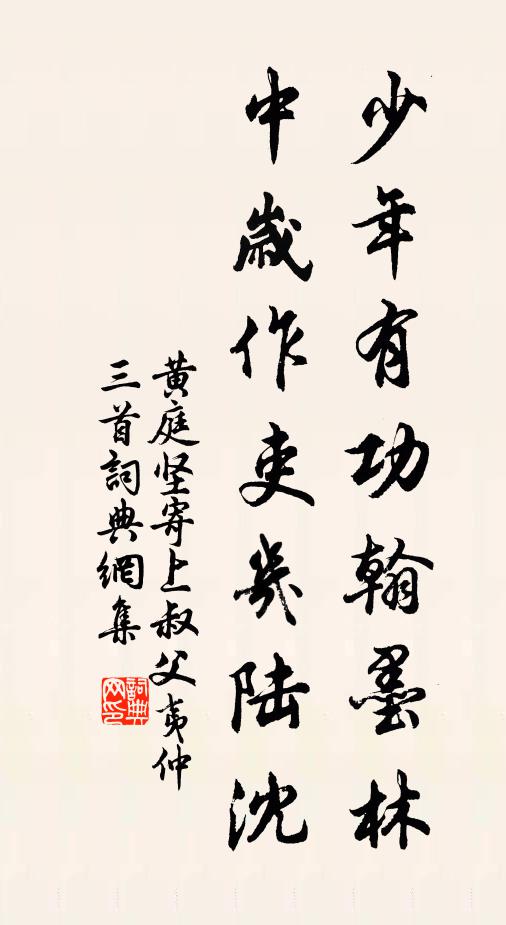 少年有功翰墨林
中歲作吏幾陆沈
黄庭坚寄上叔父夷仲
三首詞典網集
詞典網印